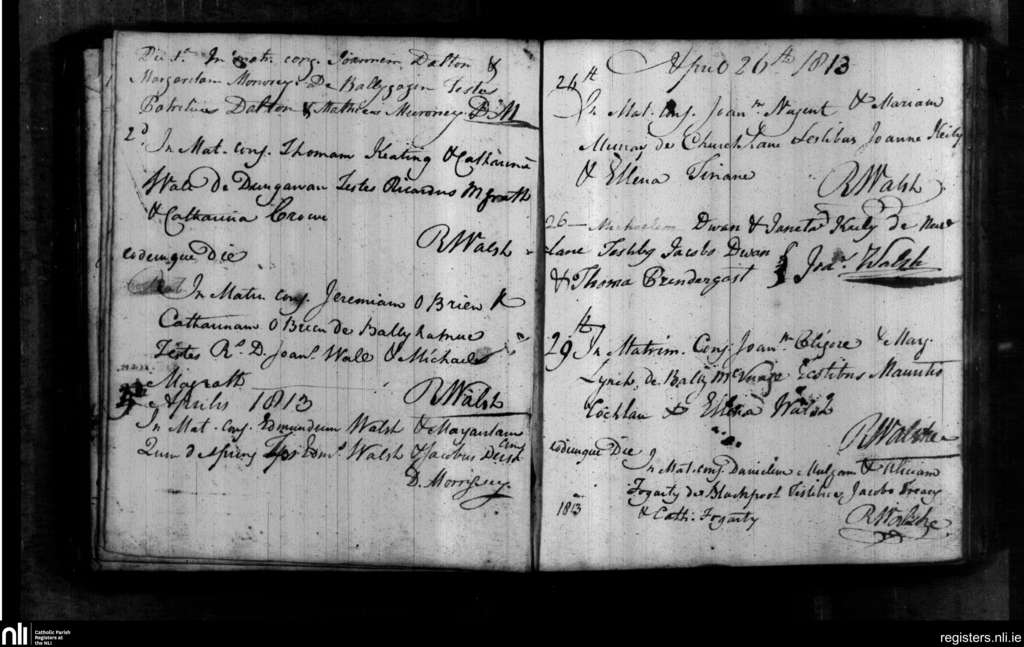 Die 1a. In mat. conj. Joannem Dalton &
Margaretam De Testes
Patritius Dalton & Mathias D.M
2d. In Mat. conj. Thomam Keating & Catharinam
Wall de Dungarvan Testes Ricardus McGrath
& Catharina Crowe
RWalsh
eodemque Die
In Matri. conj. Jeremiam OBrien &
Catharinam OBrien de
Testes Rs. D. Joans. Wall & Michael
Magrath
RWalsh
Aprilis 1813
In Mat. conj. Edmundum Walsh & Margaretam
Quin de Spring Edms. Walsh & Jacobus
D. Morrissey
April 26th 1813
24th
In Mat. conj. Joanm Nugent & Mariam
Murray de Church Lane testibus Joanne Keily
& Ellena
RWalsh
26 – Michaelem Dwan & Kiely de New
Lane Jacobo Dwan
& Thoma Prendergast Joar. Walsh
29th In Matrim. Conj. Joanm & Mary
Lynch de Testibus Mauritio
& Ellena Walsh
RWalshe
eodemque Die In Mat. conj. Danielem &
Fogarty de Blackpool Testibus Jacobo Treacy
1813 & Cath. Fogarty
RWalshe
nli Catholic Parish
Registers at
the NLI
registers.nli.ie